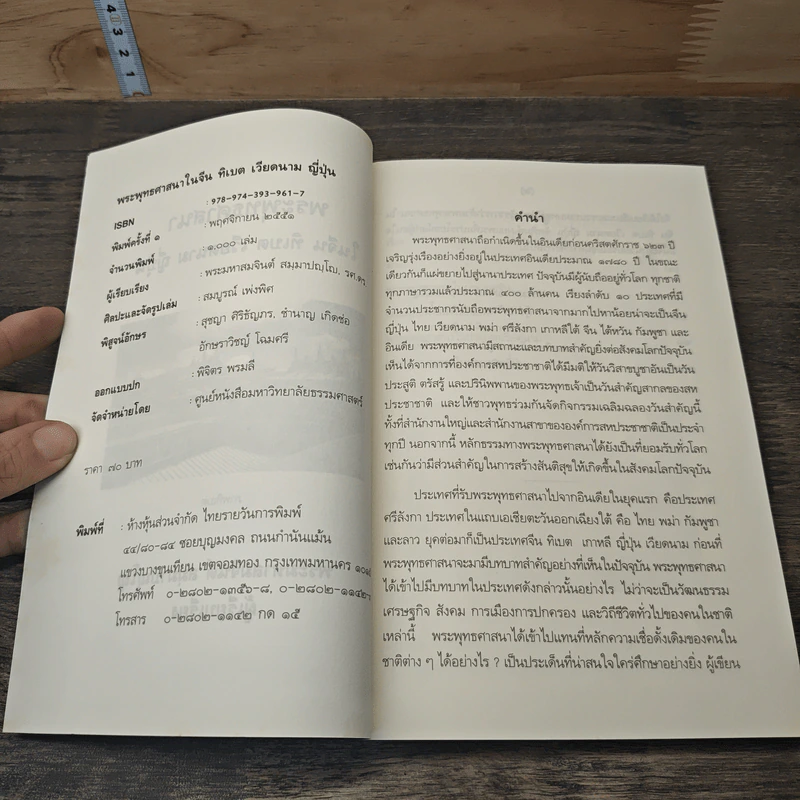 4
3
2
1
พระพุทธศาสนาในจีน ทิเบต เวียดนาม ญี่ปุ่น
ISBN : 978-974-393-961-7
พิมพ์ครั้งที่ ๑ : พฤศจิกายน ๒๕๕๑
จำนวนพิมพ์ : ๑,๐๐๐ เล่ม
ผู้เรียบเรียง : พระมหาสมจินต์ สมฺมาปญฺโญ, รศ.ดร
ศิลปะและจัดรูปเล่ม : สมบูรณ์ เพ่งพิศ
พิสูจน์อักษร : สุชญา ศิริธัญภร, ชำนาญ เกิดช่อ
อักษราวิชญ์ โฉมศรี
ออกแบบปก : พิจิตร พรมลี
จัดจำหน่ายโดย : ศูนย์หนังสือมหาวิทยาลัยธรรมศาสตร์
ราคา ๗๐ บาท
พิมพ์ที่ : ห้างหุ้นส่วนจำกัด ไทยรายวันการพิมพ์
๔๔/๘๐-๘๔ ซอยบุญมงคล ถนนกำนันแม้น
แขวงบางขุนเทียน เขตจอมทอง กรุงเทพมหานคร
โทรศัพท์ ๐-๒๘๐๒-๑๓๕๖-๘, ๐-๒๘๐๒-๑๑๔๒-
โทรสาร ๐-๒๘๐๒-๑๑๔๒ กด ๑๕
คำนำ
พระพุทธศาสนาถือกำเนิดขึ้นในอินเดียก่อนคริสตศักราช ๖๒๓ ปี
เจริญรุ่งเรืองอย่างยิ่งอยู่ในประเทศอินเดียประมาณ ๑๗๘๐ ปี ในขณะ
เดียวกันก็แผ่ขยายไปสู่นานาประเทศ ปัจจุบันมีผู้นับถืออยู่ทั่วโลก ทุกชาติ
ทุกภาษารวมแล้วประมาณ ๕๐๐ ล้านคน เรียงลำดับ ๑๐ ประเทศที่มี
จำนวนประชากรนับถือพระพุทธศาสนาจากมากไปหาน้อยน่าจะเป็นจีน
ญี่ปุ่น ไทย เวียดนาม พม่า ศรีลังกา เกาหลีใต้ จีน ไต้หวัน กัมพูชา และ
อินเดีย พระพุทธศาสนามีสถานะและบทบาทสำคัญยิ่งต่อสังคมโลกปัจจุบัน
เห็นได้จากการที่องค์การสหประชาชาติได้มีมติให้วันวิสาขบูชาอันเป็นวัน
ประสูติ ตรัสรู้ และปรินิพพานของพระพุทธเจ้าเป็นวันสำคัญสากลของสห
ประชาชาติ และให้ชาวพุทธร่วมกันจัดกิจกรรมเฉลิมฉลองวันสำคัญนี้
ทั้งที่สำนักงานใหญ่และสำนักงานสาขาขององค์การสหประชาชาติเป็นประจำ
ทุกปี นอกจากนี้ หลักธรรมทางพระพุทธศาสนาได้ยังเป็นที่ยอมรับทั่วโลก
เช่นกันว่ามีส่วนสำคัญในการสร้างสันติสุขให้เกิดขึ้นในสังคมโลกปัจจุบัน
ประเทศที่รับพระพุทธศาสนาไปจากอินเดียในยุคแรก คือประเทศ
ศรีลังกา ประเทศในแถบเอเชียตะวันออกเฉียงใต้ คือ ไทย พม่า กัมพูชา
และลาว ยุคต่อมาก็เป็นประเทศจีน ทิเบต เกาหลี ญี่ปุ่น เวียดนาม ก่อนที่
พระพุทธศาสนาจะมามีบทบาทสำคัญอย่างที่เห็นในปัจจุบัน พระพุทธศาสนา
ได้เข้าไปมีบทบาทในประเทศดังกล่าวนั้นอย่างไร ไม่ว่าจะเป็นวัฒนธรรม
เศรษฐกิจ สังคม การเมืองการปกครอง และวิถีชีวิตทั่วไปของคนในชาติ
เหล่านี้ พระพุทธศาสนาได้เข้าไปแทนที่หลักความเชื่อดั้งเดิมของคนใน
ชาติต่าง ๆ ได้อย่างไร ? เป็นประเด็นที่น่าสนใจใคร่ศึกษาอย่างยิ่ง ผู้เขียน